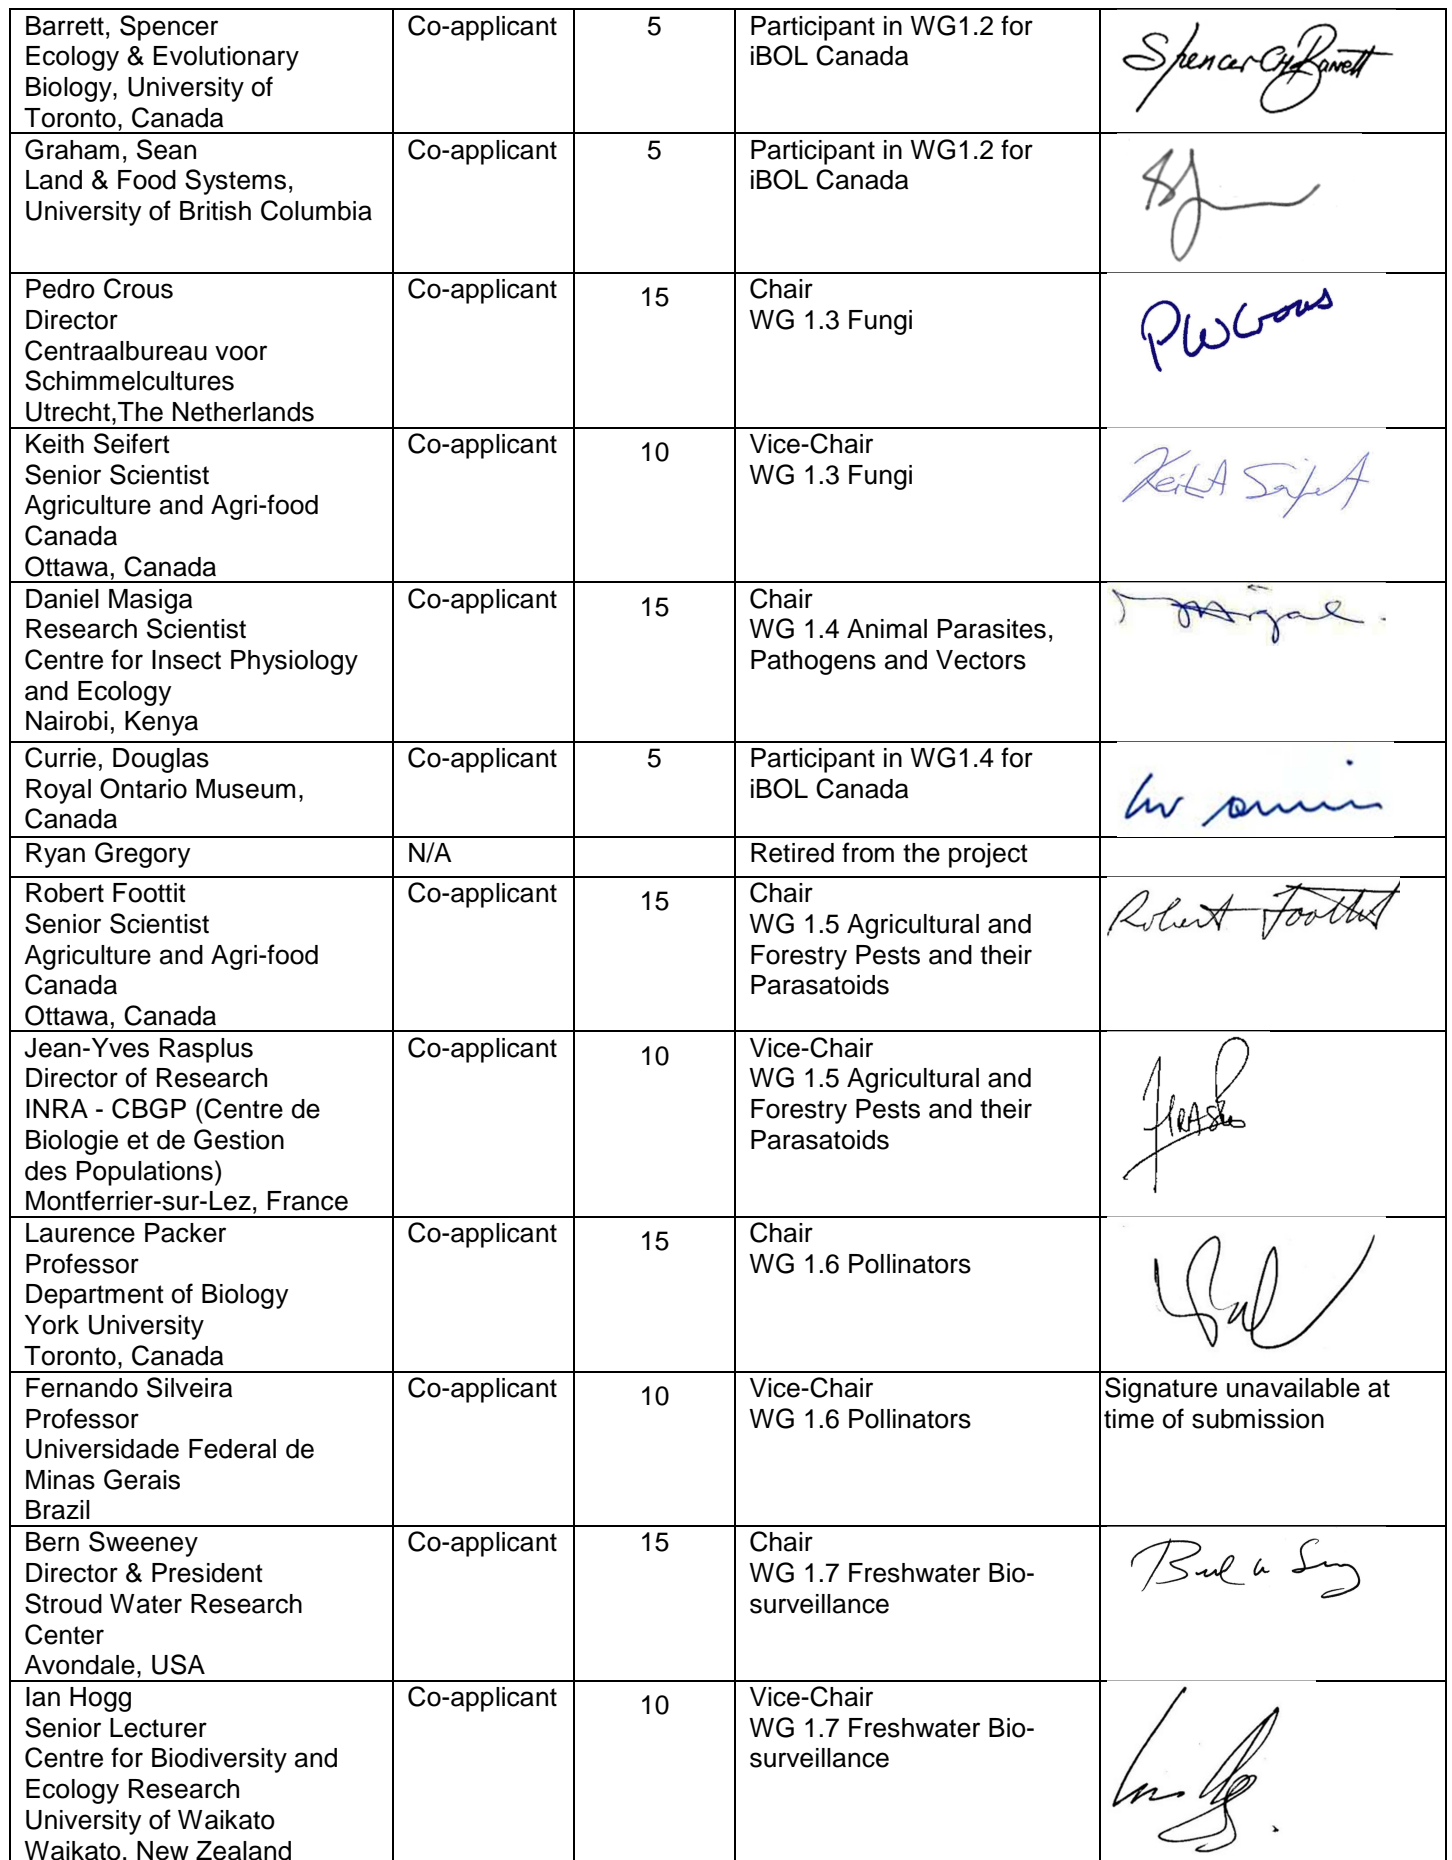 Barrett, Spencer
Ecology & Evolutionary
Biology, University of
Toronto, Canada
Co-applicant
5
Participant in WG1.2 for
iBOL Canada
Spencer CH Barrett
Graham, Sean
Land & Food Systems,
University of British Columbia
Co-applicant
5
Participant in WG1.2 for
iBOL Canada
Pedro Crous
Director
Centraalbureau voor
Schimmelcultures
Utrecht,The Netherlands
Co-applicant
15
Chair
WG 1.3 Fungi
PW Crous
Keith Seifert
Senior Scientist
Agriculture and Agri-food
Canada
Ottawa, Canada
Co-applicant
10
Vice-Chair
WG 1.3 Fungi
Keith Seifert
Daniel Masiga
Research Scientist
Centre for Insect Physiology
and Ecology
Nairobi, Kenya
Co-applicant
15
Chair
WG 1.4 Animal Parasites,
Pathogens and Vectors
Currie, Douglas
Royal Ontario Museum,
Canada
Co-applicant
5
Participant in WG1.4 for
iBOL Canada
Ryan Gregory
N/A
Retired from the project
Robert Foottit
Senior Scientist
Agriculture and Agri-food
Canada
Ottawa, Canada
Co-applicant
15
Chair
WG 1.5 Agricultural and
Forestry Pests and their
Parasatoids
Robert Foottit
Jean-Yves Rasplus
Director of Research
INRA - CBGP (Centre de
Biologie et de Gestion
des Populations)
Montferrier-sur-Lez, France
Co-applicant
10
Vice-Chair
WG 1.5 Agricultural and
Forestry Pests and their
Parasatoids
Laurence Packer
Professor
Department of Biology
York University
Toronto, Canada
Co-applicant
15
Chair
WG 1.6 Pollinators
Fernando Silveira
Professor
Universidade Federal de
Minas Gerais
Brazil
Co-applicant
10
Vice-Chair
WG 1.6 Pollinators
Signature unavailable at
time of submission
Bern Sweeney
Director & President
Stroud Water Research
Center
Avondale, USA
Co-applicant
15
Chair
WG 1.7 Freshwater Bio-
surveillance
Ian Hogg
Senior Lecturer
Centre for Biodiversity and
Ecology Research
University of Waikato
Waikato, New Zealand
Co-applicant
10
Vice-Chair
WG 1.7 Freshwater Bio-
surveillance